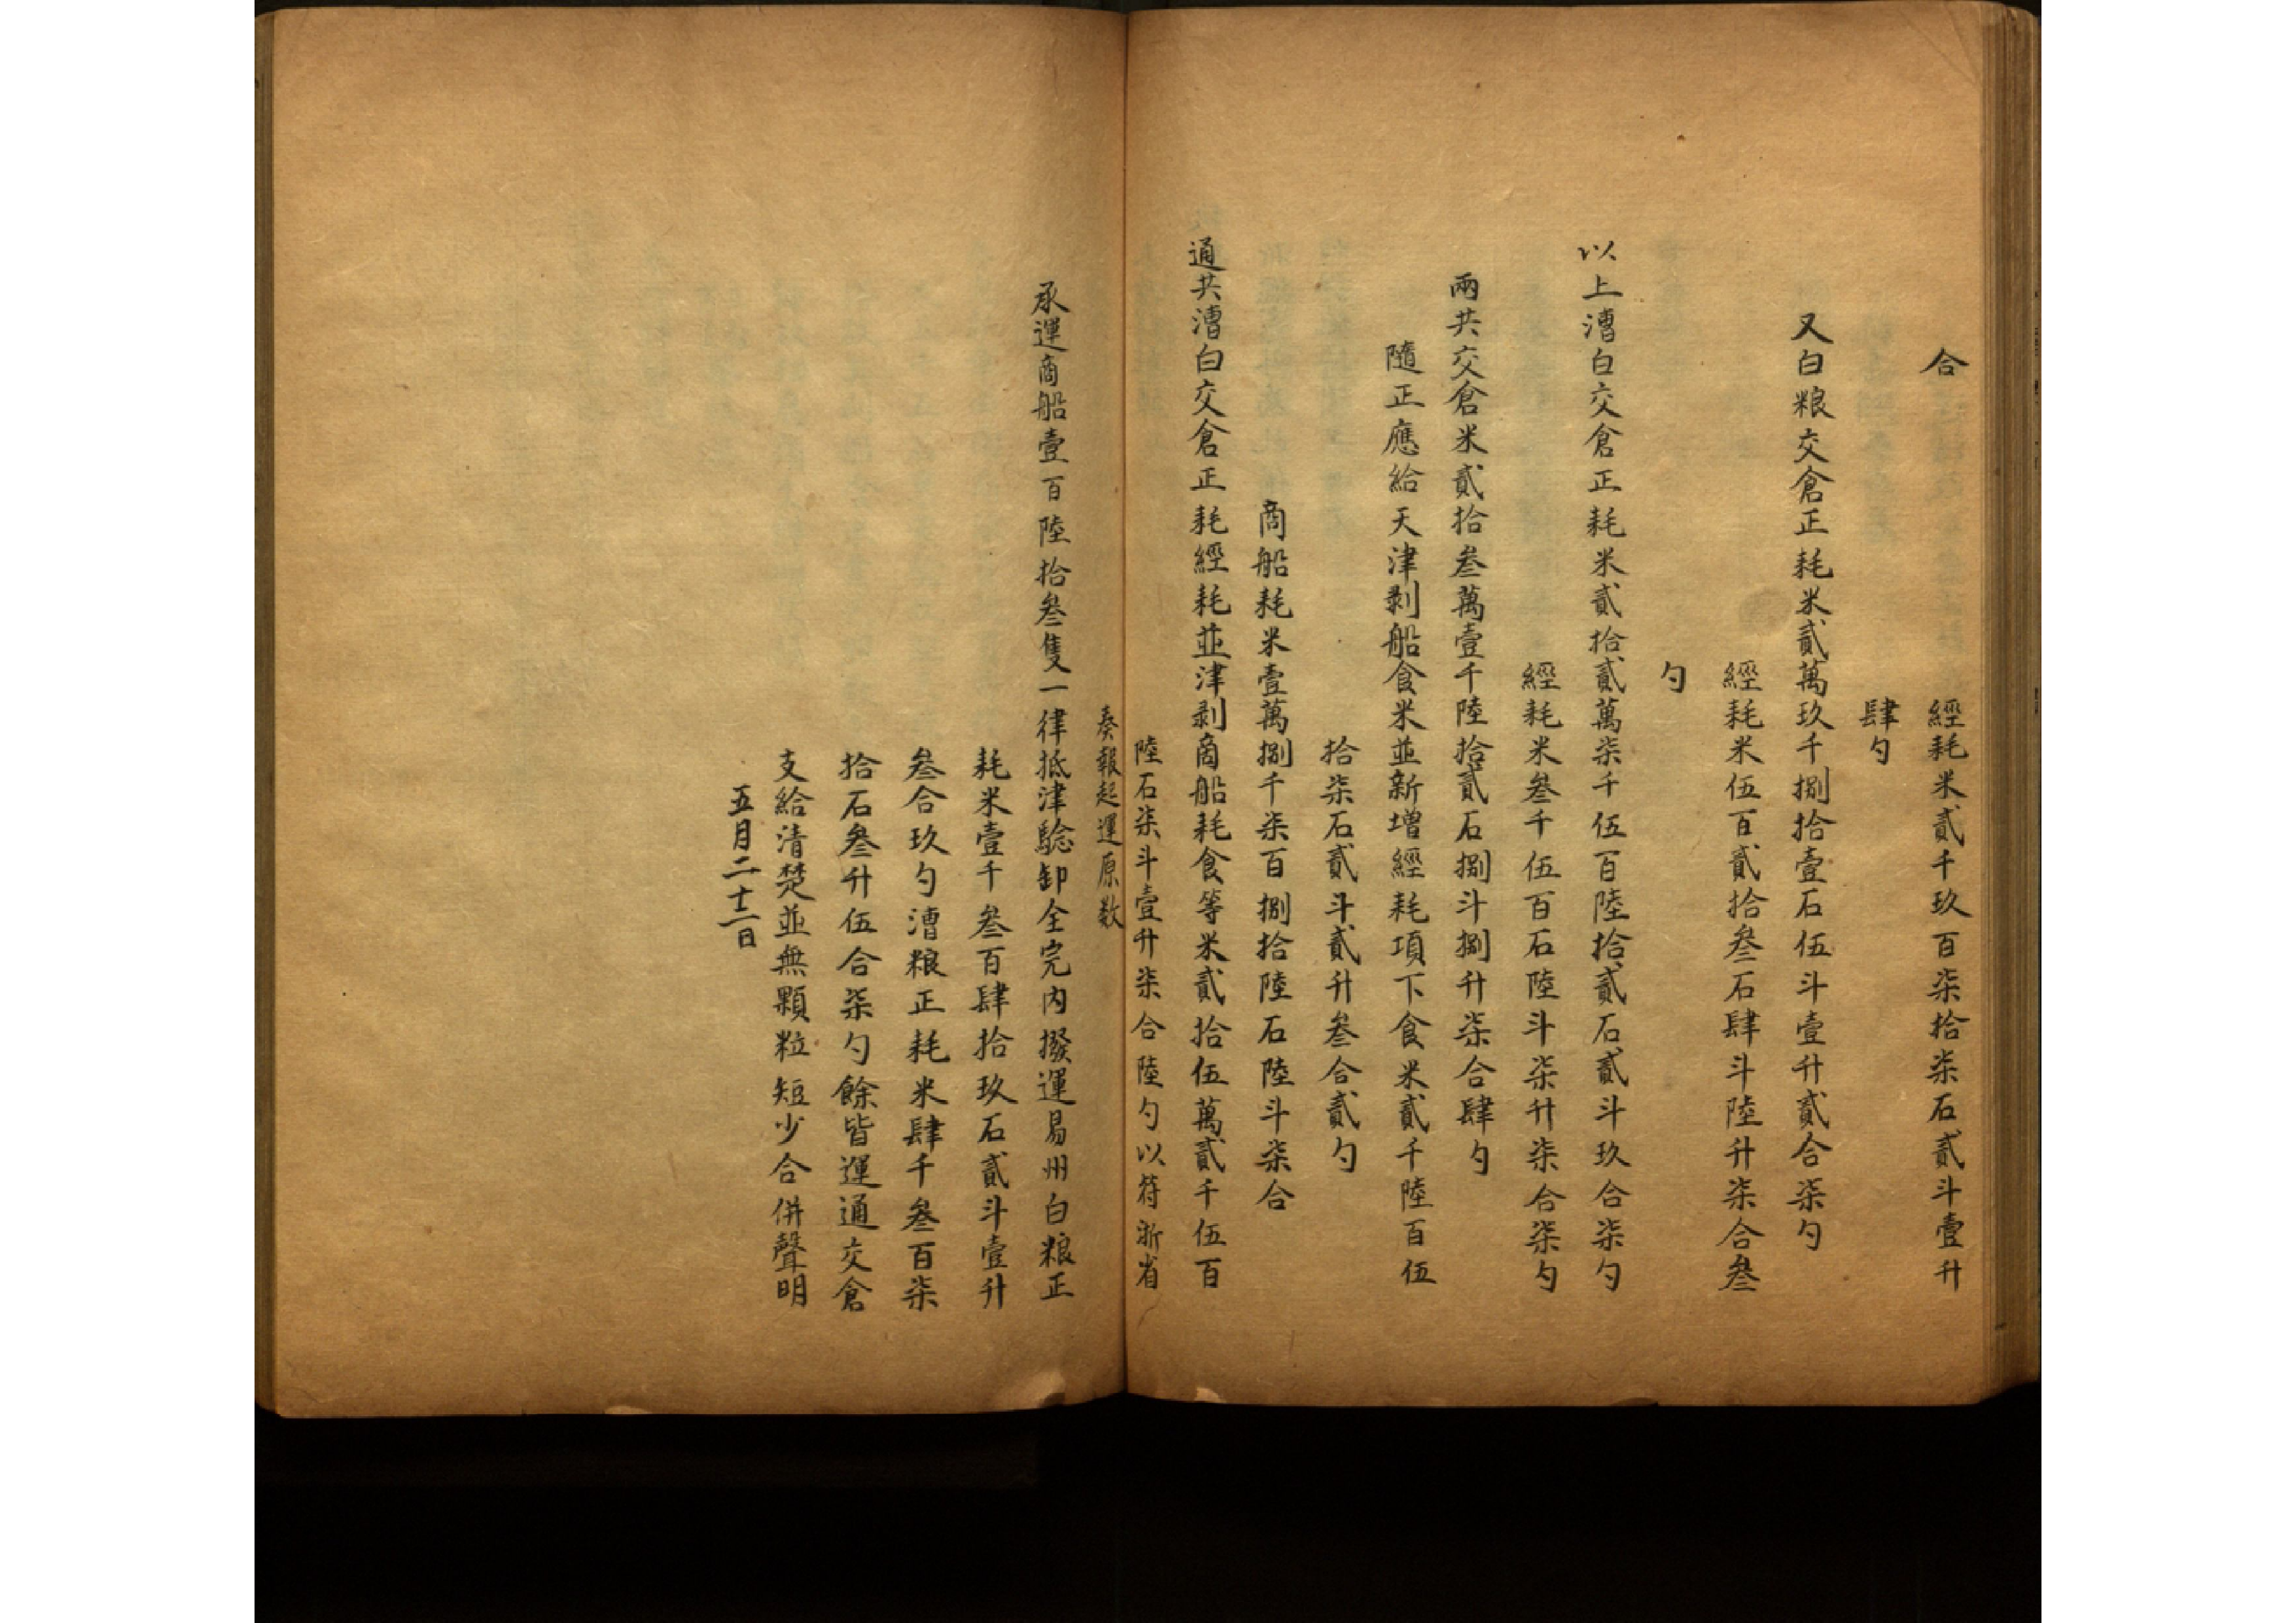 合　經耗米貳千玖百柒拾柒石貳斗壹升
肆勺
又白粮交倉正耗米貳萬玖千捌拾壹石伍斗壹升貳合柒勺
經耗米伍百貳拾叁石肆斗陸升柒合叁
勺
以上漕白交倉正耗米貳拾貳萬柒千伍百陸拾貳石貳斗玖合柒勺
經耗米叁千伍百石陸斗柒升柒合柒勺
兩共交倉米貳拾叁萬壹千陸拾貳石捌斗捌升柒合肆勺
隨正應給天津剥船食米並新增經耗項下食米貳千陸百伍
拾柒石貳斗貳升叁合貳勺
商船耗米壹萬捌千柒百捌拾陸石陸斗柒合
通共漕白交倉正耗經耗並津剥商船耗食等米貳拾伍萬貳千伍百
陸石柒斗壹升柒合陸勺以符浙省
奏報起運原数
承運商船壹百陸拾叁隻一律抵津騐卸全完内撥運易州白粮正
耗米壹千叁百肆拾玖石貳斗壹升
叁合玖勺漕粮正耗米肆千叁百柒
拾石叁升伍合柒勺餘皆運通交倉
支給清楚並無顆粒短少合併聲明
五月二十二日